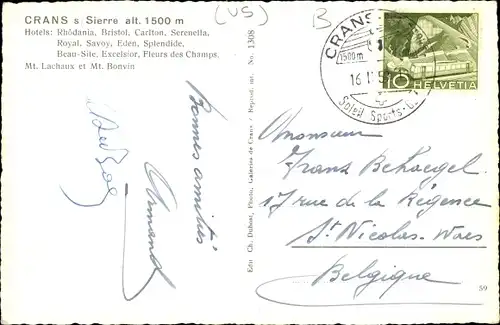 CRANS s Sierre alt. 1500 m
Hotels: Rhodania, Bristol, Carlton, Serenella,
Royal, Savoy, Eden, Splendide,
Beau-Site, Excelsior, Fleurs des Champs,
Mt. Lachaux et Mt. Bonvin
(VS)
B
CRANS
1500 m
16
Soleil Sports
10 HELVETIA
Bonnes amitiés
Armand
Edn Ch. Dubost, Photo, Galeries de Crans / Reprod. int. No. 1308
Monsieur
Frans Behaegel
17 rue de la Régence
St Nicolas-Waes
Belgique
59